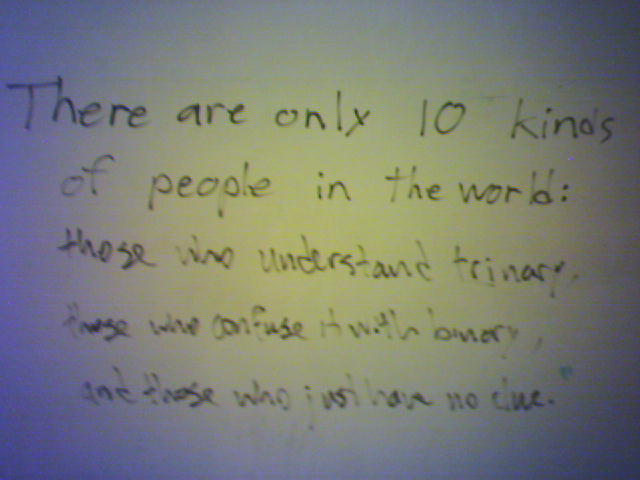 There are only 10 kinds
of people in the world:
those who understand trinary,
those who confuse it with binary,
and those who just have no clue.